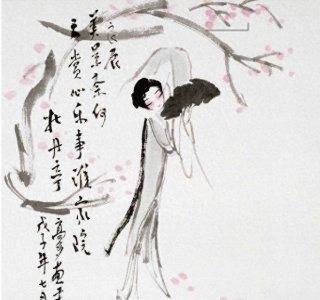 良辰
美景奈何
天赏心乐事谁家院
牡丹亭
画于
戊子年七月